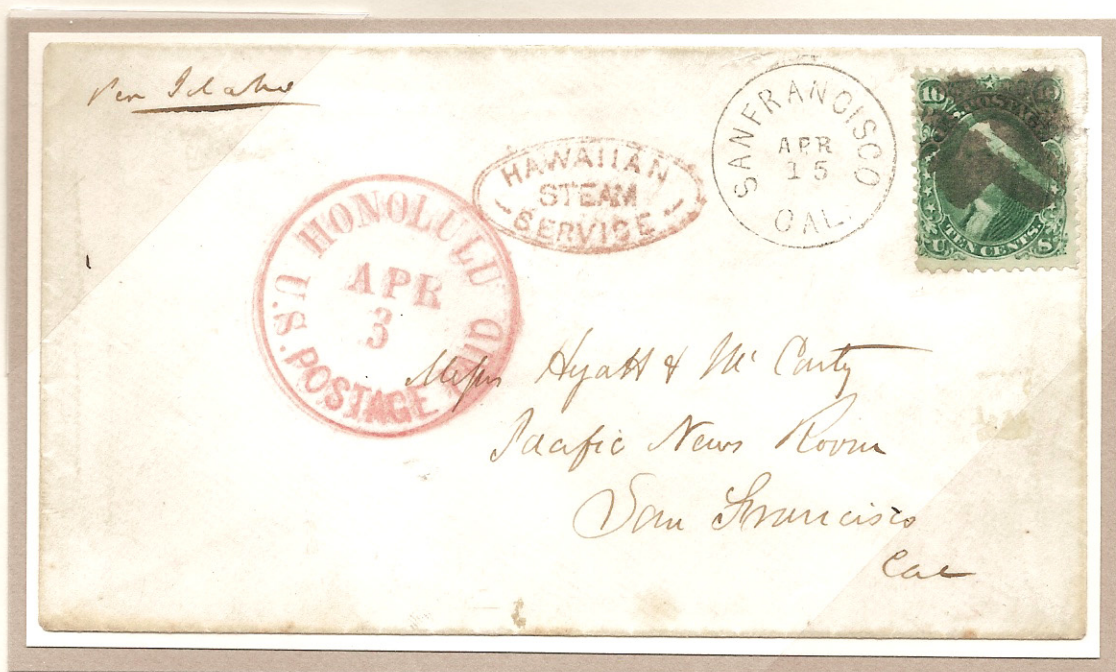 Per Idaho
HAWAIIAN
STEAM
SERVICE
SAN FRANCISCO
APR
15
CAL.
10
U TEN CENTS. S
HONOLULU
APR
3
U.S. POSTAGE PAID
Messrs Hyatt & McCarty
Pacific News Room
San Francisco
Cal